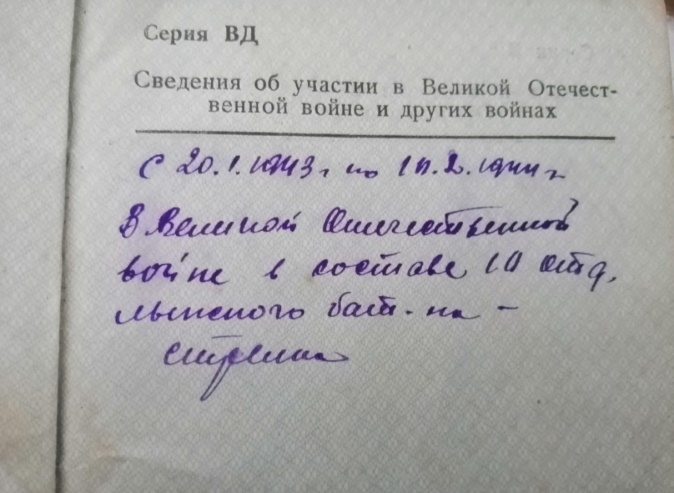 Серия ВД
Сведения об участии в Великой Отечест-
венной войне и других войнах
с 20.1.1943 г по 2.1944 г
В Великой Отечественной
войне в составе 10 отд.
лыжного бат-на -
стрелка